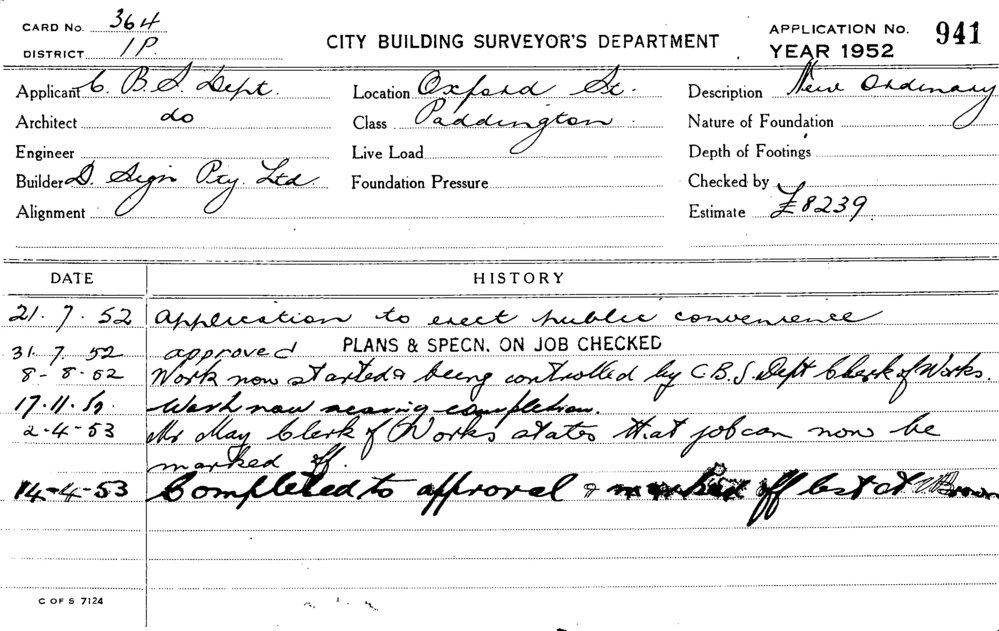 CARD No. 364
DISTRICT 1P.
CITY BUILDING SURVEYOR'S DEPARTMENT
APPLICATION No. 941
YEAR 1952
Applicant C. B. S. Dept. Location Oxford St. Description New Ordinary
Architect do Class Paddington Nature of Foundation
Engineer Live Load Depth of Footings
Builder D. Sign Pty. Ltd. Foundation Pressure Checked by
Alignment Estimate £8239
DATE HISTORY
21. 7. 52 Application to erect public convenience
31. 7. 52 approved PLANS & SPECN. ON JOB CHECKED
8-8-52 Work now started & being controlled by C.B.S. Dept Clerk of Works.
17.11.52. Work now nearing completion.
2-4-53 Mr May Clerk of Works states that job can now be
marked off.
14-4-53 Completed to approval & marked off
C OF S 7124